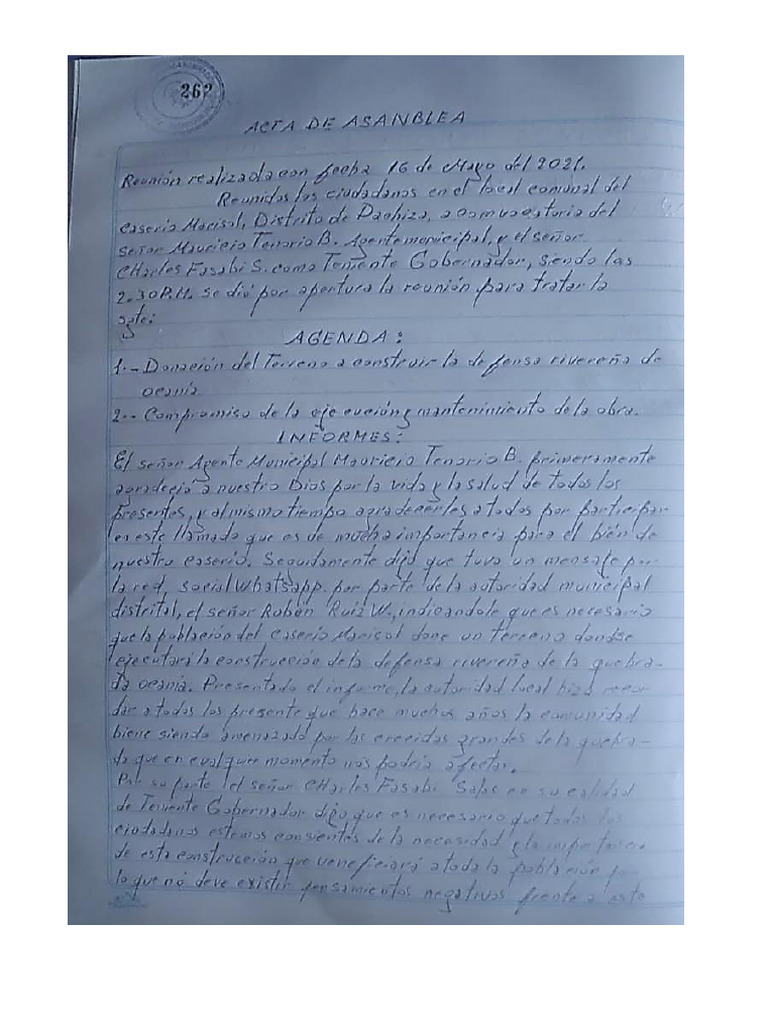 262
ACTA DE ASANBLEA
Reunión realizada con fecha 16 de Mayo del 2021.
Reunidos los ciudadanos en el local comunal del
Caserio Marisol, Distrito de Pachiza, a convocatoria del
señor Mauricio Tenorio B. Agente municipal, y el señor
CHarles Fasabi S. como Teniente Gobernador, siendo las
2.30P.M. se dió por apertura la reunión para tratar lo
sgte:
AGENDA:
1.- Donación del Terreno a construir la defensa rivereña de
oceanía.
2.- Compromiso de la ejecución y mantenimiento de la obra.
INFORMES:
El señor Agente Municipal Mauricio Tenorio B. primeramente
agradeció a nuestro Dios por la vida y la salud de todos los
presentes, y al mismo tiempo agradecerles a todos por participar
en este llamado que es de mucha importancia para el bién de
nuestro caserio. Seguidamente dijo que tuvo un mensaje por
la red, social Whatsapp. por parte de la autoridad municipal
distrital, el señor Rubén Ruiz W., indicandole que es necesario
que la población del Caserio Marisol done un terreno donde se
ejecutará la construcción de la defensa rivereña de la quebra-
da oceanía. Presentado el informe, la autoridad local hizo recor-
dar a todos los presente que hace muchos años la comunidad
biene siendo amenazado por las crecidas grandes de la quebra-
da que en cualquier momento nos podría afectar.
Por su parte el señor CHarles Fasabi Salas en su calidad
de Teniente Gobernador dijo que es necesario que todos los
ciudadanos estemos consientes de la necesidad y la importancia
de esta construcción que veneficiará a toda la población por
lo que nó deve existir pensamientos negativos frente a esto